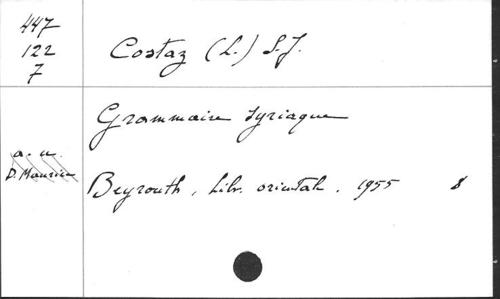 447
122
7
Costaz (L.) S.J.
Grammaire syriaque
a. u.
D. Maurice
Beyrouth, Libr. orientale. 1955